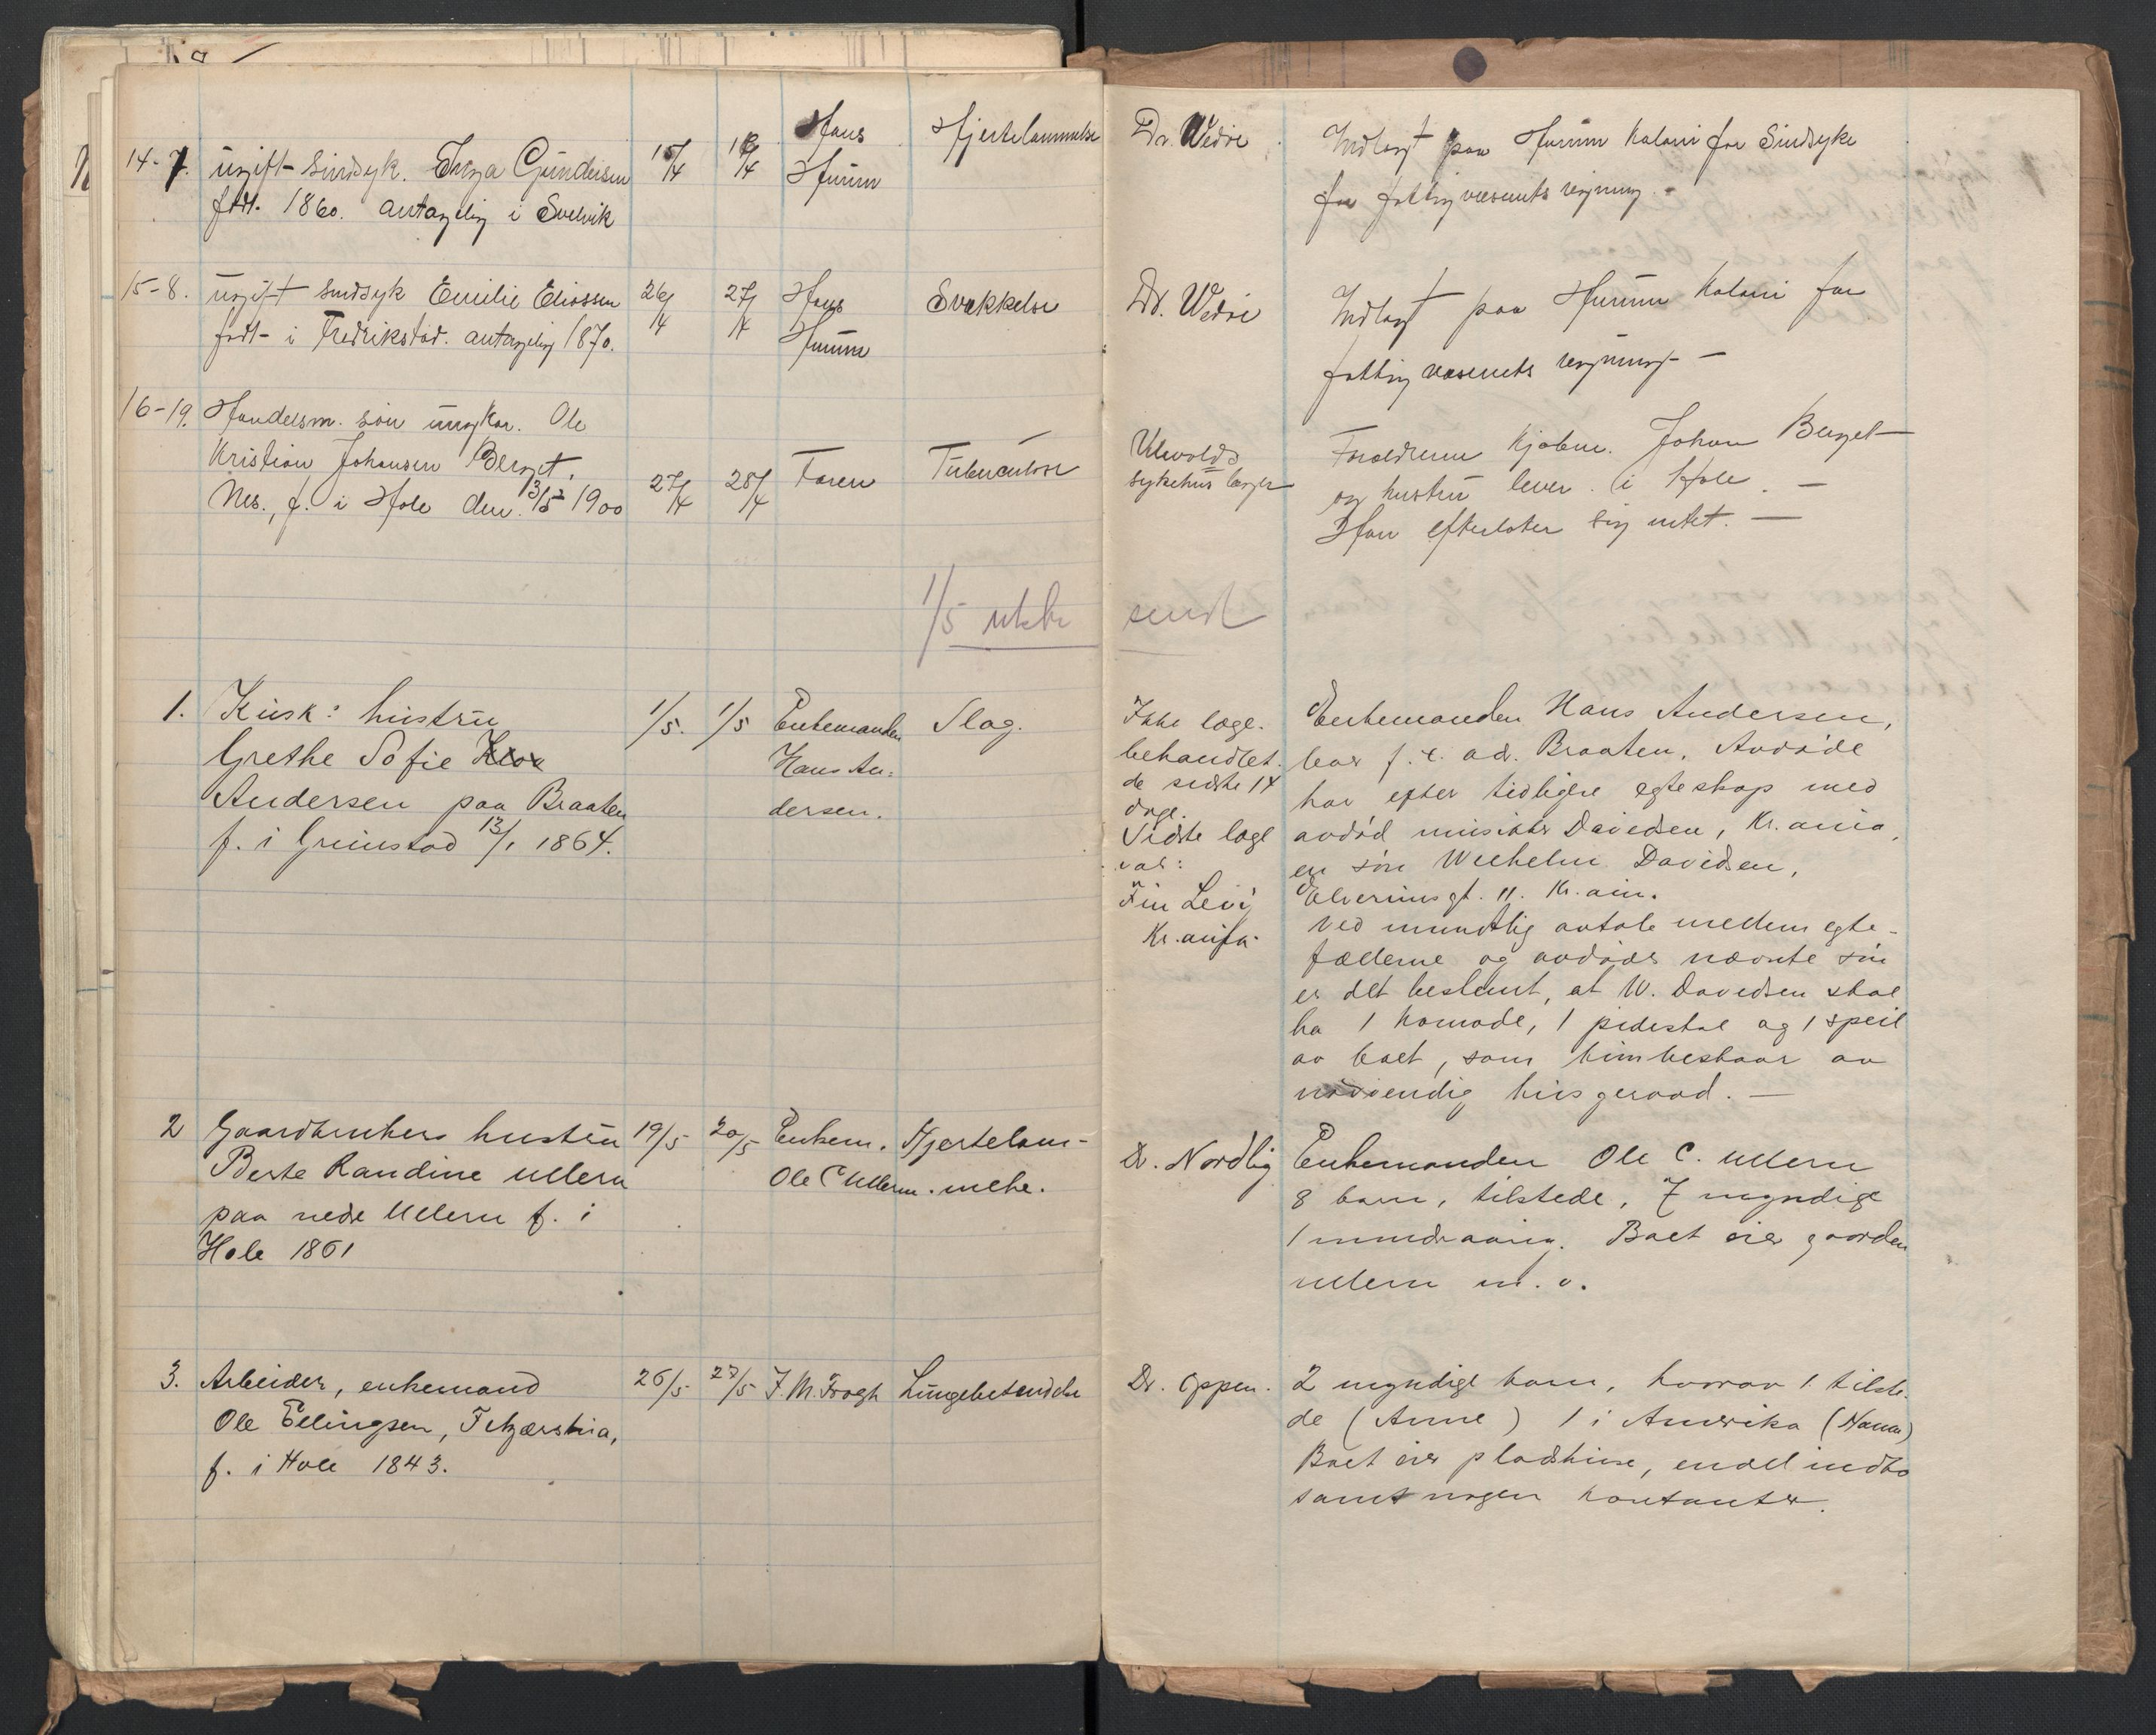 14-7. ugift sindsyk. Inga Gundersen 15/4 18/4 Hans Hjertelammelse Dr. Wedøe Indlagt paa Hurum Koloni for Sindsyke
født. 1860. antagelig i Svelvik Hurum for fattigvæsenets regning. -
15-8. ugift sindsyk Emilie Eliassen 26/4 27/4 Hans Svækkelse Dr. Wedøe Indlagt paa Hurum Koloni for
født i Fredrikstad. antagelig 1870. Hurum fattigvæsenets regning -
16-19. Handelsm. søn ungkar. Ole
Kristian Johansen Berget,
Nes., f. i Hole den 13/5 1900 27/4 28/4 Faren Tuberculose Ulevolds
sykehus læger
Forældrene Kjøbm. Johan Berget
og hustru lever i Hole. -
Han efterlater sig intet. -
1/5 sendt
1. Kusk: hustru
Grethe Sofie
Andersen paa Braaten
f. i Grimstad 13/1 1864.
1/5. 1/5 Enkemanden
Hans An-
dersen.
Slag.
Ikke læge-
behandlet
de sidste 14
dage.
Sidste læge
var:
Fin Levy
Kr.ania.
Enkemanden Hans Andersen,
bor f. t. ad. Braaten. Avdøde
har efter tidligere egteskap med
avdød musiker Davidsen, Kr.ania,
en søn Wilhelm Davidsen,
gt. 11. Kr.ania.
Ved mundtlig avtale mellem egte-
fællerne og avdødes nævnte søn
er det bestemt, at W. Davidsen skal
ha 1 komode, 1 pidestal og 1 speil
av boet, som kun bestaar av
nødvendig husgeraad. -
2 Gaardbrukers hustru 19/5 20/5 Enkem. Hjertelam-
Berte Randine Ullern Ole C Ullern. melse.
paa nedre Ullern f. i
Hole 1861
Dr. Nordlig Enkemanden Ole C. Ullern
8 barn, tilstede, 7 myndige
1 mindreaarig. Boet eier gaarden
Ullern m. v.
3. Arbeider, enkemand 26/5 27/5 J. M. Frogh Lungebetendelse
Ole Ellingsen,
f. i Hole 1843.
Dr. Oppen. 2 myndige barn, hvorav 1 tilste-
de (Anne) 1 i Amerika
Boet eier pladshuse, endel indbo
samt nogen kontanter.